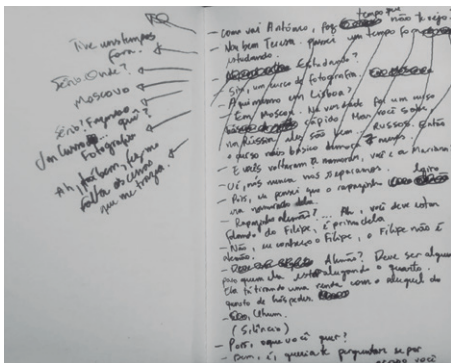 Tive uns tempos
fora.
Sério? Onde?
Moscovo
Sério! Fazendo o
quê?
Um curso
Fotografia
Ah,
falta
que me trazia.
- Como vai António, faz tempo que não te vejo.
- Vou bem Teresa. passei um tempo fora
estudando.
- Estudando?
- Sim, um curso de fotografia.
- Aqui mesmo em Lisboa?
- Em Moscou. Na verdade foi um curso
básico rápido. Mas você sabe,
na Rússia eles são bem... Russos. Então
o curso mais básico demora
- E vocês voltaram a namorar, você e a Mariana?
- Ué, nós nunca nos separamos.
- Pois, eu pensei que o rapazinho loiro
era namorado dela.
- Rapazinho alemão? ... Ah, você deve estar
falando do Filipe, é primo dela
- Não, eu conheço o Filipe, o Filipe não é
alemão.
- Alemão? Deve ser alguém
para quem ela está alugando o quarto.
Ela tá tirando uma renda com o aluguel do
quarto de hóspedes
- Uhum.
(Silêncio)
- Pois, o que você quer?
queria te perguntar se por